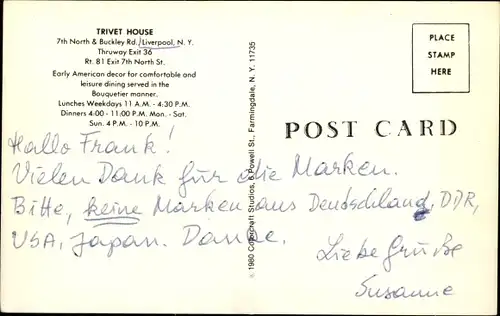 TRIVET HOUSE
7th North & Buckley Rd./Liverpool, N. Y.
Thruway Exit 36
Rt. 81 Exit 7th North St.
Early American decor for comfortable and
leisure dining served in the
Bouquetier manner.
Lunches Weekdays 11 A.M. - 4:30 P.M.
Dinners 4:00 - 11:00 P.M. Mon. - Sat.
Sun. 4 P.M. - 10 P.M.
© 1980 Colorcraft Studios, Powell St., Farmingdale, N. Y. 11735
PLACE
STAMP
HERE
POST CARD
Hallo Frank!
Vielen Dank für die Marken.
Bitte, keine Marken aus Deutschland, DDR,
USA, Japan. Danke.
Liebe Grüße
Susanne